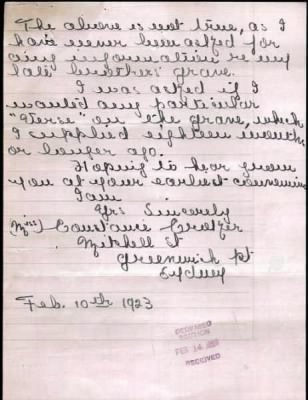 The above is not true, as I
have never been asked for
any information re my
late brothers grave.
I was asked if I
would any particular
"Verse" on the grave, which
I supplied eighteen months
or longer ago.
Hoping to hear from
you at your earliest convenience
I am
Yrs Sincerely
(Miss) Constance
Mitchell St
Greenwich Pt
Sydney
Feb. 10th 1923
DECEASED
SECTION
FEB 14
RECEIVED